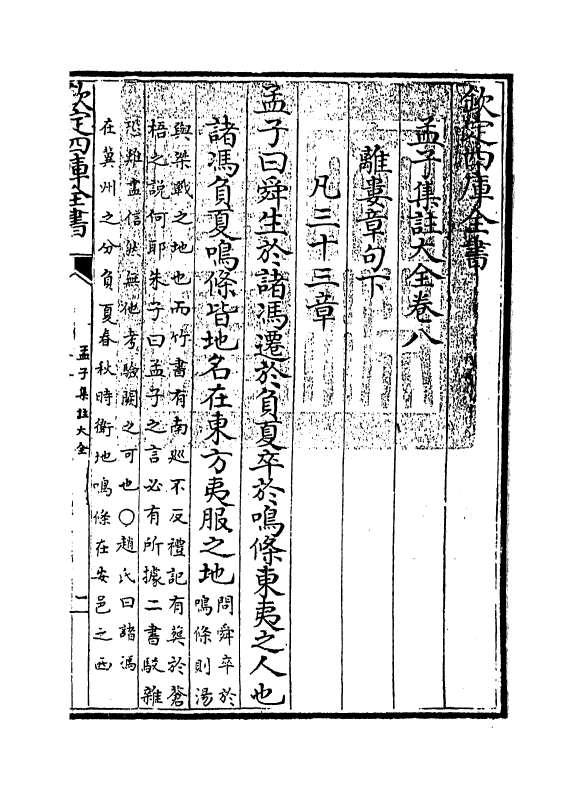 欽定四庫全書
孟子集註大全卷八
離婁章句下
凡三十三章
孟子曰舜生於諸馮遷於負夏卒於鳴條東夷之人也
諸馮負夏鳴條皆地名在東方夷服之地
問舜卒於
鳴條則湯
與桀戰之地也而竹書有南廵不反禮記有葬於蒼
梧之説何耶朱子曰孟子之言必有所據二書駁雜
恐難盡信然無他考驗闕之可也○趙氏曰諸馮
在冀州之分負夏春秋時衛地鳴條在安邑之西
欽定四庫全書
孟子集註大全